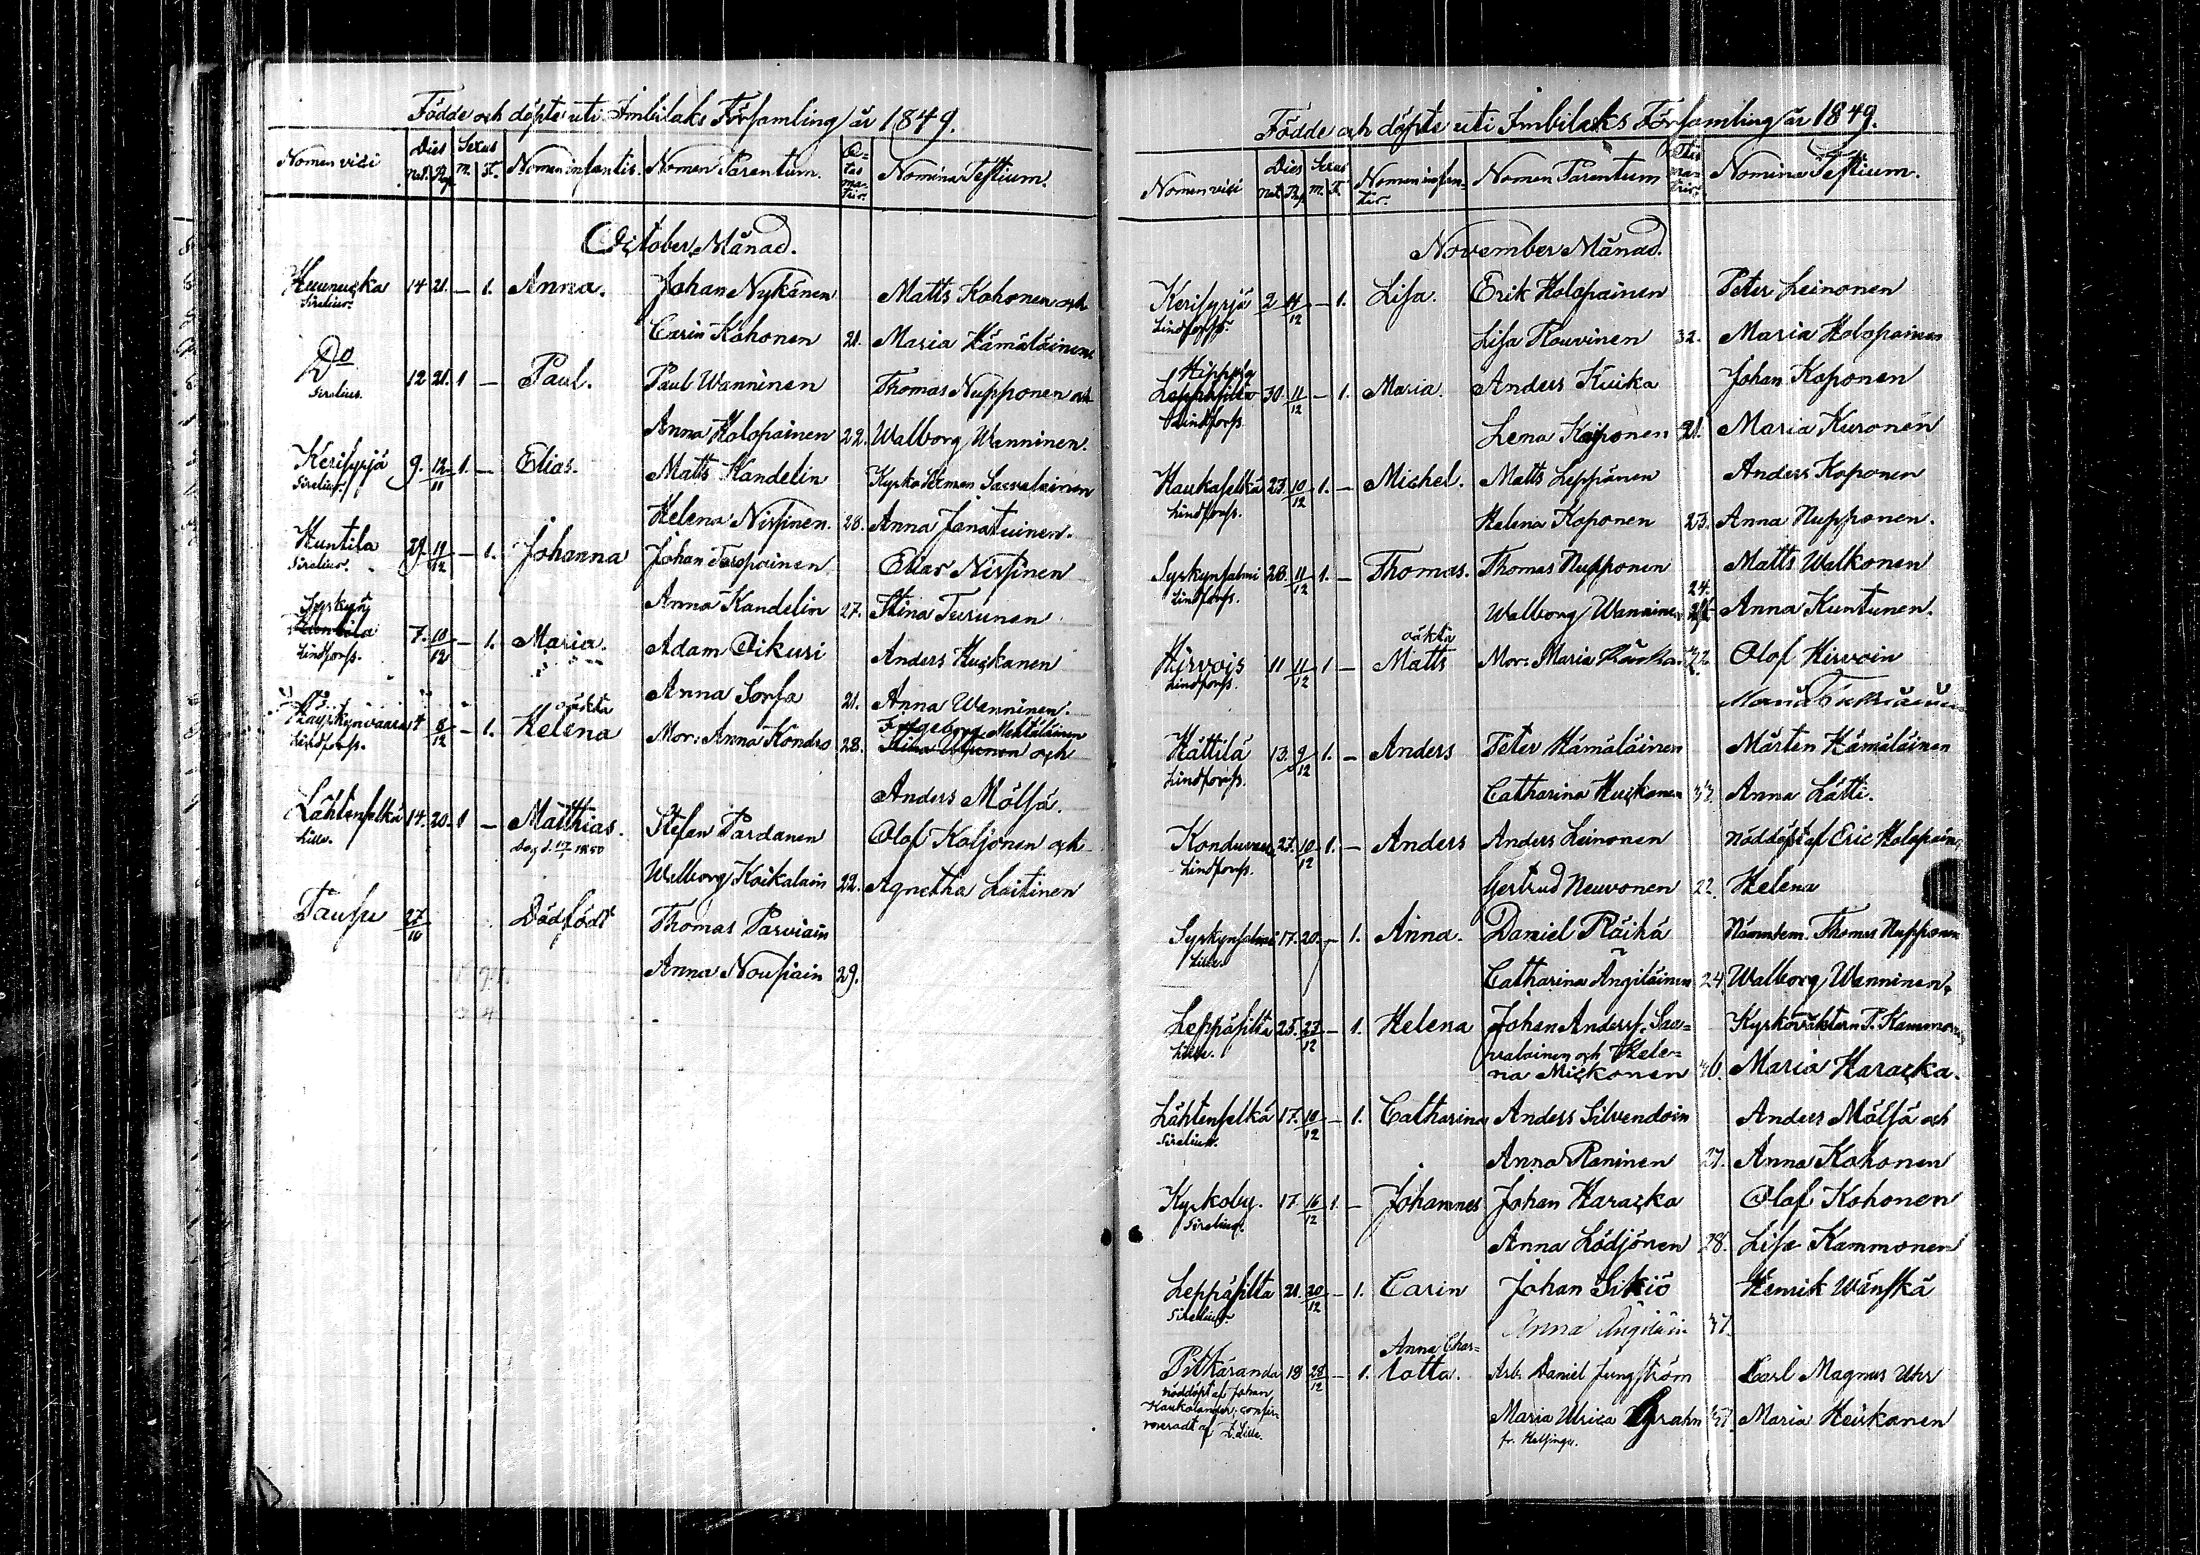 Födde och döpte uti Imbilaks Församling år 1849.
Nomen vici Dies Nat. Bap. Sexus M. F. Nomen infantis. Nomen Parentum. Ætas matris. Nomina Testium.
October Månad.
Huunukka 14 21. — 1. Anna. Johan Nykänen Matts Kohonen och
Sirelius. Carin Kohonen 21. Maria Hämäläinen
Do 12 21. 1 — Paul. Paul Wanninen Thomas Nupponen och
Sirelius. Anna Holopainen 22. Walborg Wanninen.
Kerisyrjä 9. 12/11 1. — Elias. Matts Kandelin Saawalainen
Sirelius. Helena Nissinen. 28. Anna
Huntila 29. 19/12 — 1. Johanna Johan Elias Nissinen
Sirelius. Anna Kandelin 27. Stina Turunen
Syskyä
7. 10/12 — 1. Maria. Adam Oikusi Anders Huckanen
Lindforss. Anna Sorsa 21. Anna Wanninen.
4 8/12 — 1. oäkta Helena Mor: Anna Kondro 28. Ingeborg
Lindforss. och
Anders Mölsä.
Lähtenselkä 14. 20. 1 — Matthias. Stefan Pardanen Olof Koljonen och
Lille. 1850 Walborg Koikalain 22. Agnetha Laitinen
Pausu 27/10 Dödfödt Thomas Parviain
Anna Nousiain 29.
Födde och döpte uti Imbilaks Församling år 1849.
Nomen vici Dies Nat. Bap. Sexus M. F. Nomen infantis. Nomen Parentum Ætas matris. Nomina Testium.
November Månad.
Kerisyrjä 2 11/12 — 1. Lisa. Erik Holopainen Peter Leinonen
Lindforss. Lisa Rouvinen 32. Maria Holopainen
Hippola
Leppäsilta 30 11/12 — 1. Maria. Anders Kuika Johan Koponen
Lindforss. Lena Koponen 21. Maria Kuronen
Haukaselkä 23. 10/12 1. — Michel. Matts Leppänen Anders Koponen
Lindforss. Helena Koponen 23. Anna Nupponen.
Syskynsalmi 28. 11/12 1. — Thomas. Thomas Nupponen Matts Walkonen
Lindforss. Walborg Wanninen 24. Anna Kuntunen.
Hirvois 11 11/12 1 — oäkta Matts Mor: Maria Olof Hirvoin
Lindforss. Maria
Hättilä 13. 9/12 1. — Anders Peter Hämäläinen Mårten Hämäläinen
Lindforss. Catharina Huckanen 33. Anna Lätti.
27. 10/12 1. — Anders Anders Leinonen Nöddöpt af Eric Holopain
Lindforss. Gertrud Neuvonen 22. Helena
Syskynsalmi 17. 20. — 1. Anna. Daniel Räihä Nämndem. Thomas Nupponen
Lille. Catharina Ängiläinen 24. Walborg Wanninen.
Leppäsilta 25. 27/12 — 1. Helena Johan Anderss. Saa- Kyrkoväktern P. Kammonen
Lille. walainen och Hele-
na Mickonen 36. Maria Haracka.
Lähtenselkä 17. 10/12 — 1. Catharina Anders Silvendoin Anders Mölsä och
Sirelius. Anna Raninen 27. Anna Kohonen
Kyrkoby. 17. 16/12 1. — Johannes Johan Haracka Olof Kohonen
Sirelius. Anna Lödjönen 28. Lisa Kammonen
Leppäsilta 21. 20/12 — 1. Carin Johan Sikiö Henrik Wänskä
Sirelius. Anna Ängiläin 37.
Pitkäranda 18 28/12 — 1. Anna Char-
lotta. Arb. Daniel Ljungström Carl Magnus Uhr
nöddöpt af Johan
Haukolander, confir- Maria Ulrica Grahn 37. Maria Heiskanen
meradt af Z. Lille. fr. Helsinge.